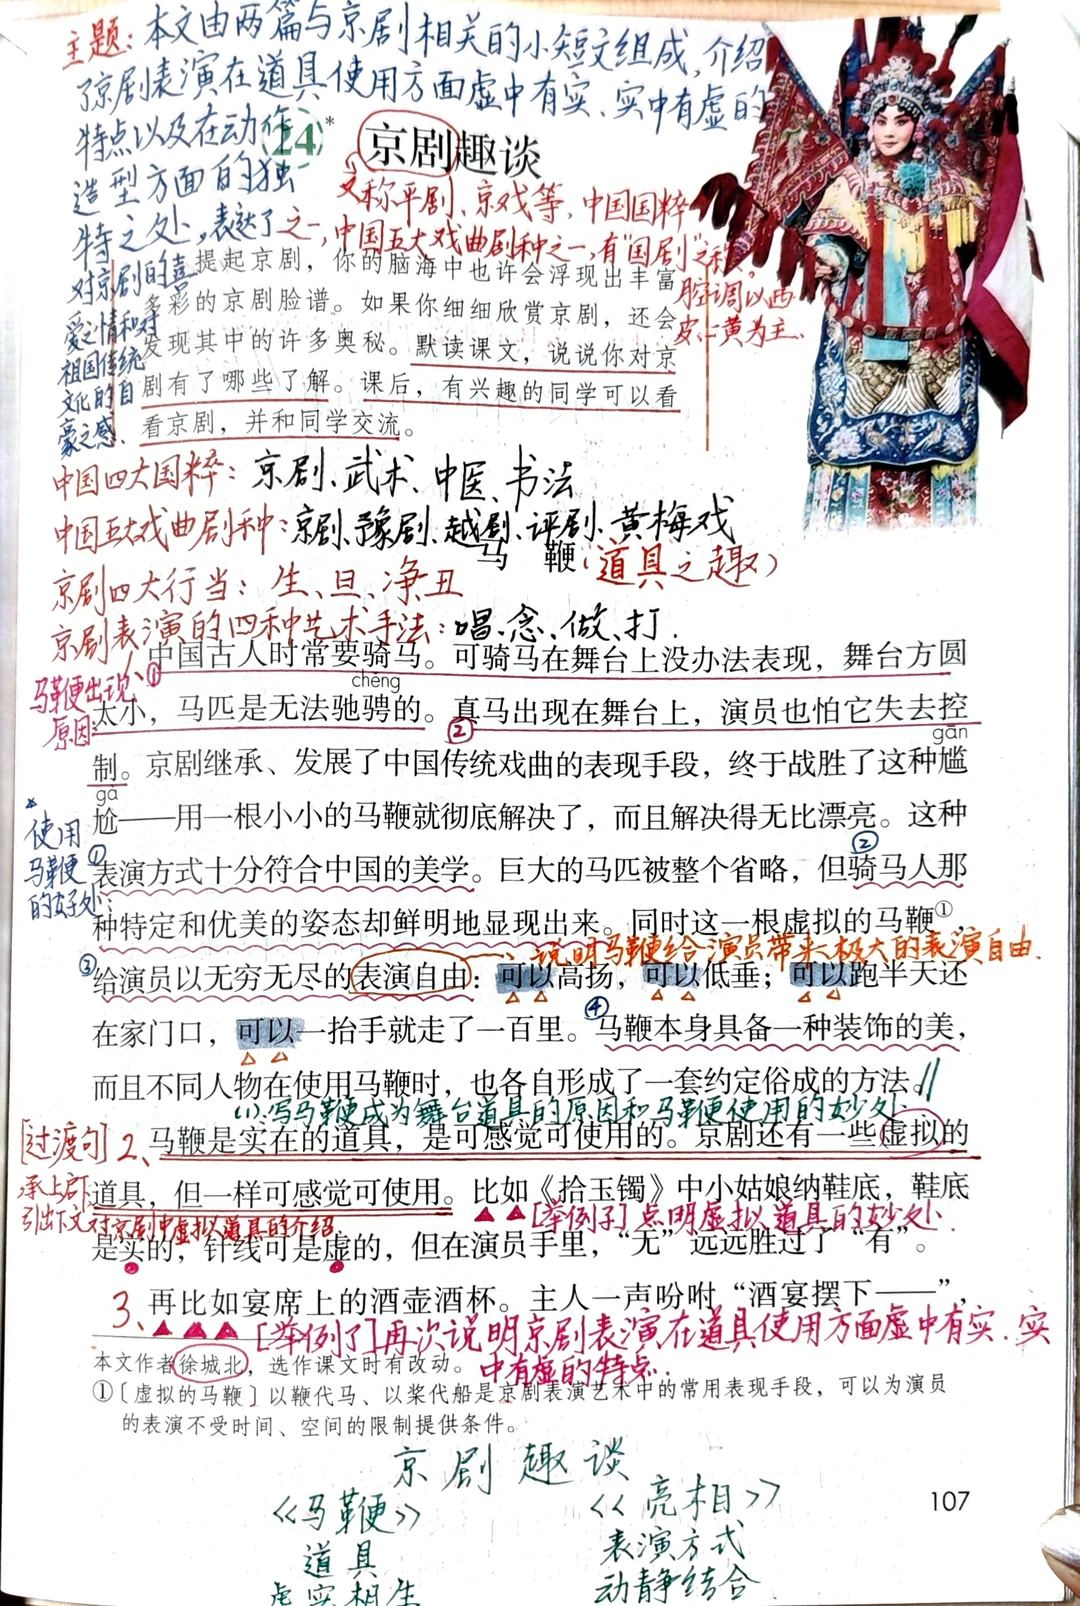 主题：本文由两篇与京剧相关的小短文组成，介绍
了京剧表演在道具使用方面虚中有实、实中有虚的
特点以及在动作
造型方面的独
特之处，表达了
对京剧的喜
爱之情和对
祖国传统
文化的自
豪之感。
24*
京剧趣谈
又称平剧、京戏等，中国国粹
之一，中国五大戏曲剧种之一，有“国剧”之称，
腔调以西
皮、二黄为主。
提起京剧，你的脑海中也许会浮现出丰富
多彩的京剧脸谱。如果你细细欣赏京剧，还会
发现其中的许多奥秘。默读课文，说说你对京
剧有了哪些了解。课后，有兴趣的同学可以看
看京剧，并和同学交流。
中国四大国粹：京剧、武术、中医、书法
中国五大戏曲剧种：京剧、豫剧、越剧、评剧、黄梅戏
马 鞭（道具之趣）
京剧四大行当：生、旦、净、丑
京剧表演的四种艺术手法：唱、念、做、打.
马鞭出现
原因：
1、①中国古人时常要骑马。可骑马在舞台上没办法表现，舞台方圆
chěng
太小，马匹是无法驰骋的。②真马出现在舞台上，演员也怕它失去控
gān
制。京剧继承、发展了中国传统戏曲的表现手段，终于战胜了这种尴
gà
尬——用一根小小的马鞭就彻底解决了，而且解决得无比漂亮。这种
使用
马鞭
的好处：
①表演方式十分符合中国的美学。巨大的马匹被整个省略，但②骑马人那
种特定和优美的姿态却鲜明地显现出来。同时这一根虚拟的马鞭①，
说明马鞭给演员带来极大的表演自由.
③给演员以无穷无尽的表演自由：可以高扬，可以低垂；可以跑半天还
在家门口，可以一抬手就走了一百里。④马鞭本身具备一种装饰的美，
而且不同人物在使用马鞭时，也各自形成了一套约定俗成的方法。//
(1).写马鞭成为舞台道具的原因和马鞭使用的妙处.
[过渡句]
2、马鞭是实在的道具，是可感觉可使用的。京剧还有一些虚拟的
承上启下
引出下文对京剧中虚拟道具的介绍.
道具，但一样可感觉可使用。比如《拾玉镯》中小姑娘纳鞋底，鞋底
[举例子]点明虚拟道具的妙处.
是实的，针线可是虚的，但在演员手里，“无”远远胜过了“有”。
3、再比如宴席上的酒壶酒杯。主人一声吩咐“酒宴摆下——”，
[举例子]再次说明京剧表演在道具使用方面虚中有实、实
中有虚的特点.
本文作者徐城北，选作课文时有改动。
①〔虚拟的马鞭〕以鞭代马、以桨代船是京剧表演艺术中的常用表现手段，可以为演员
的表演不受时间、空间的限制提供条件。
京剧趣谈
《马鞭》 《亮相》
道具 表演方式
虚实相生 动静结合
107